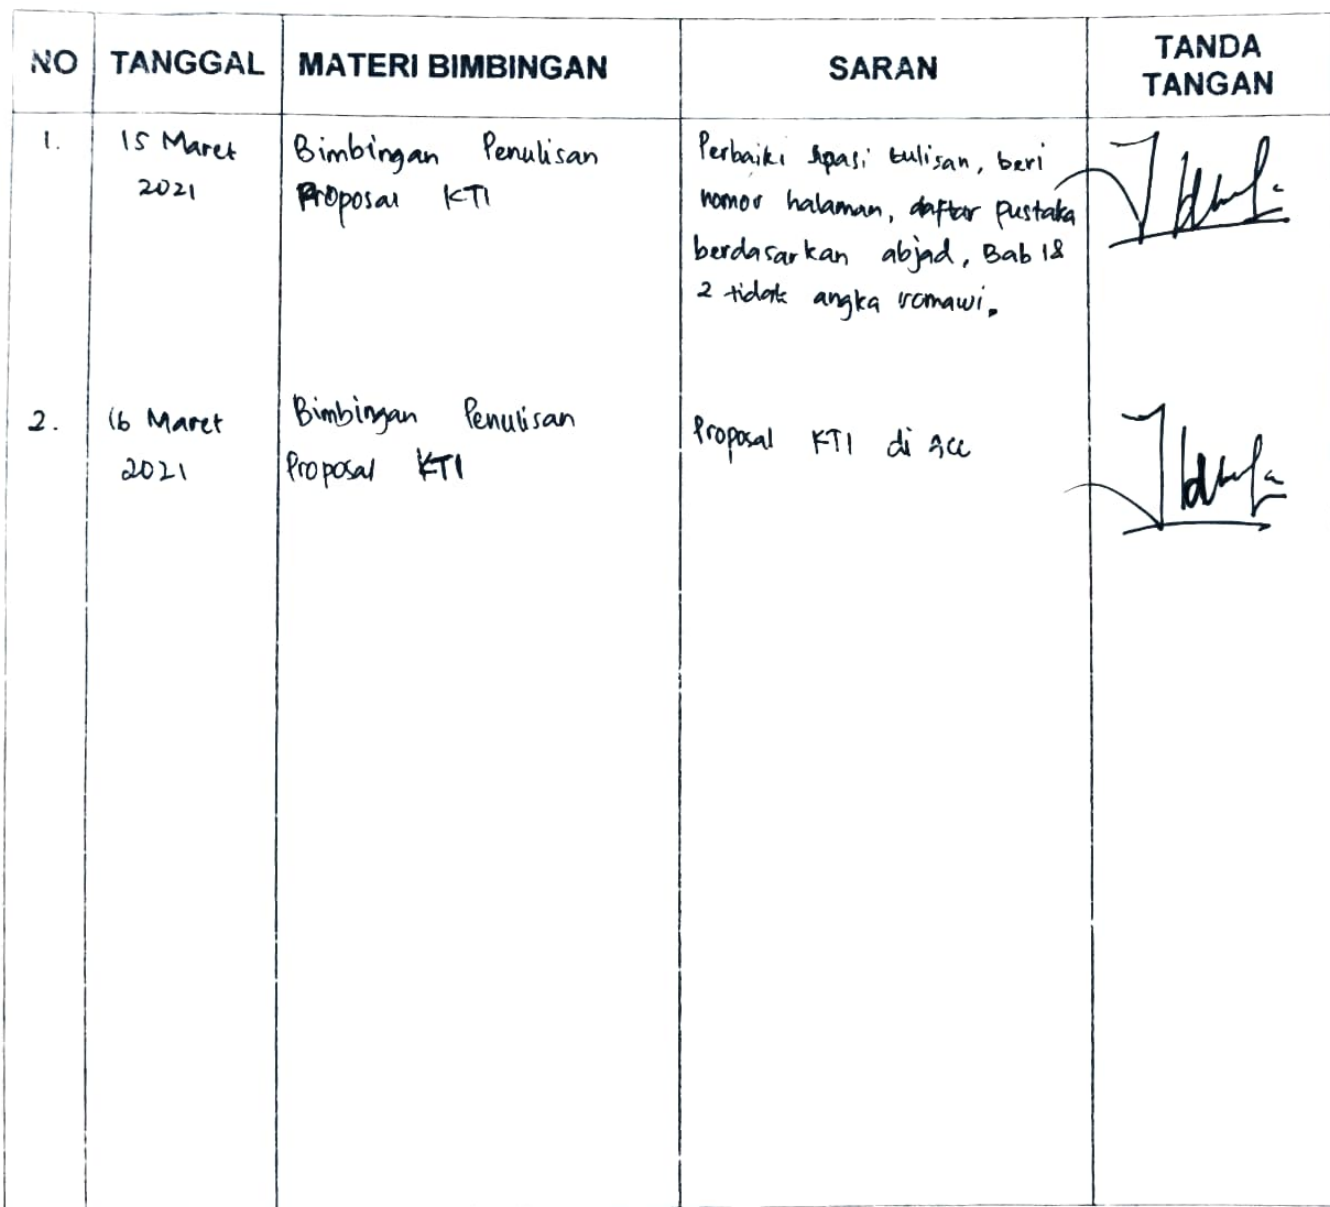 NO TANGGAL MATERI BIMBINGAN SARAN TANDA TANGAN
1. 15 Maret 2021
Bimbingan Penulisan
Proposal KTI
Perbaiki spasi tulisan, beri
nomor halaman, daftar pustaka
berdasarkan abjad, Bab 1&
2 tidak angka romawi.
2. 16 Maret 2021
Bimbingan Penulisan
Proposal KTI
Proposal KTI di acc